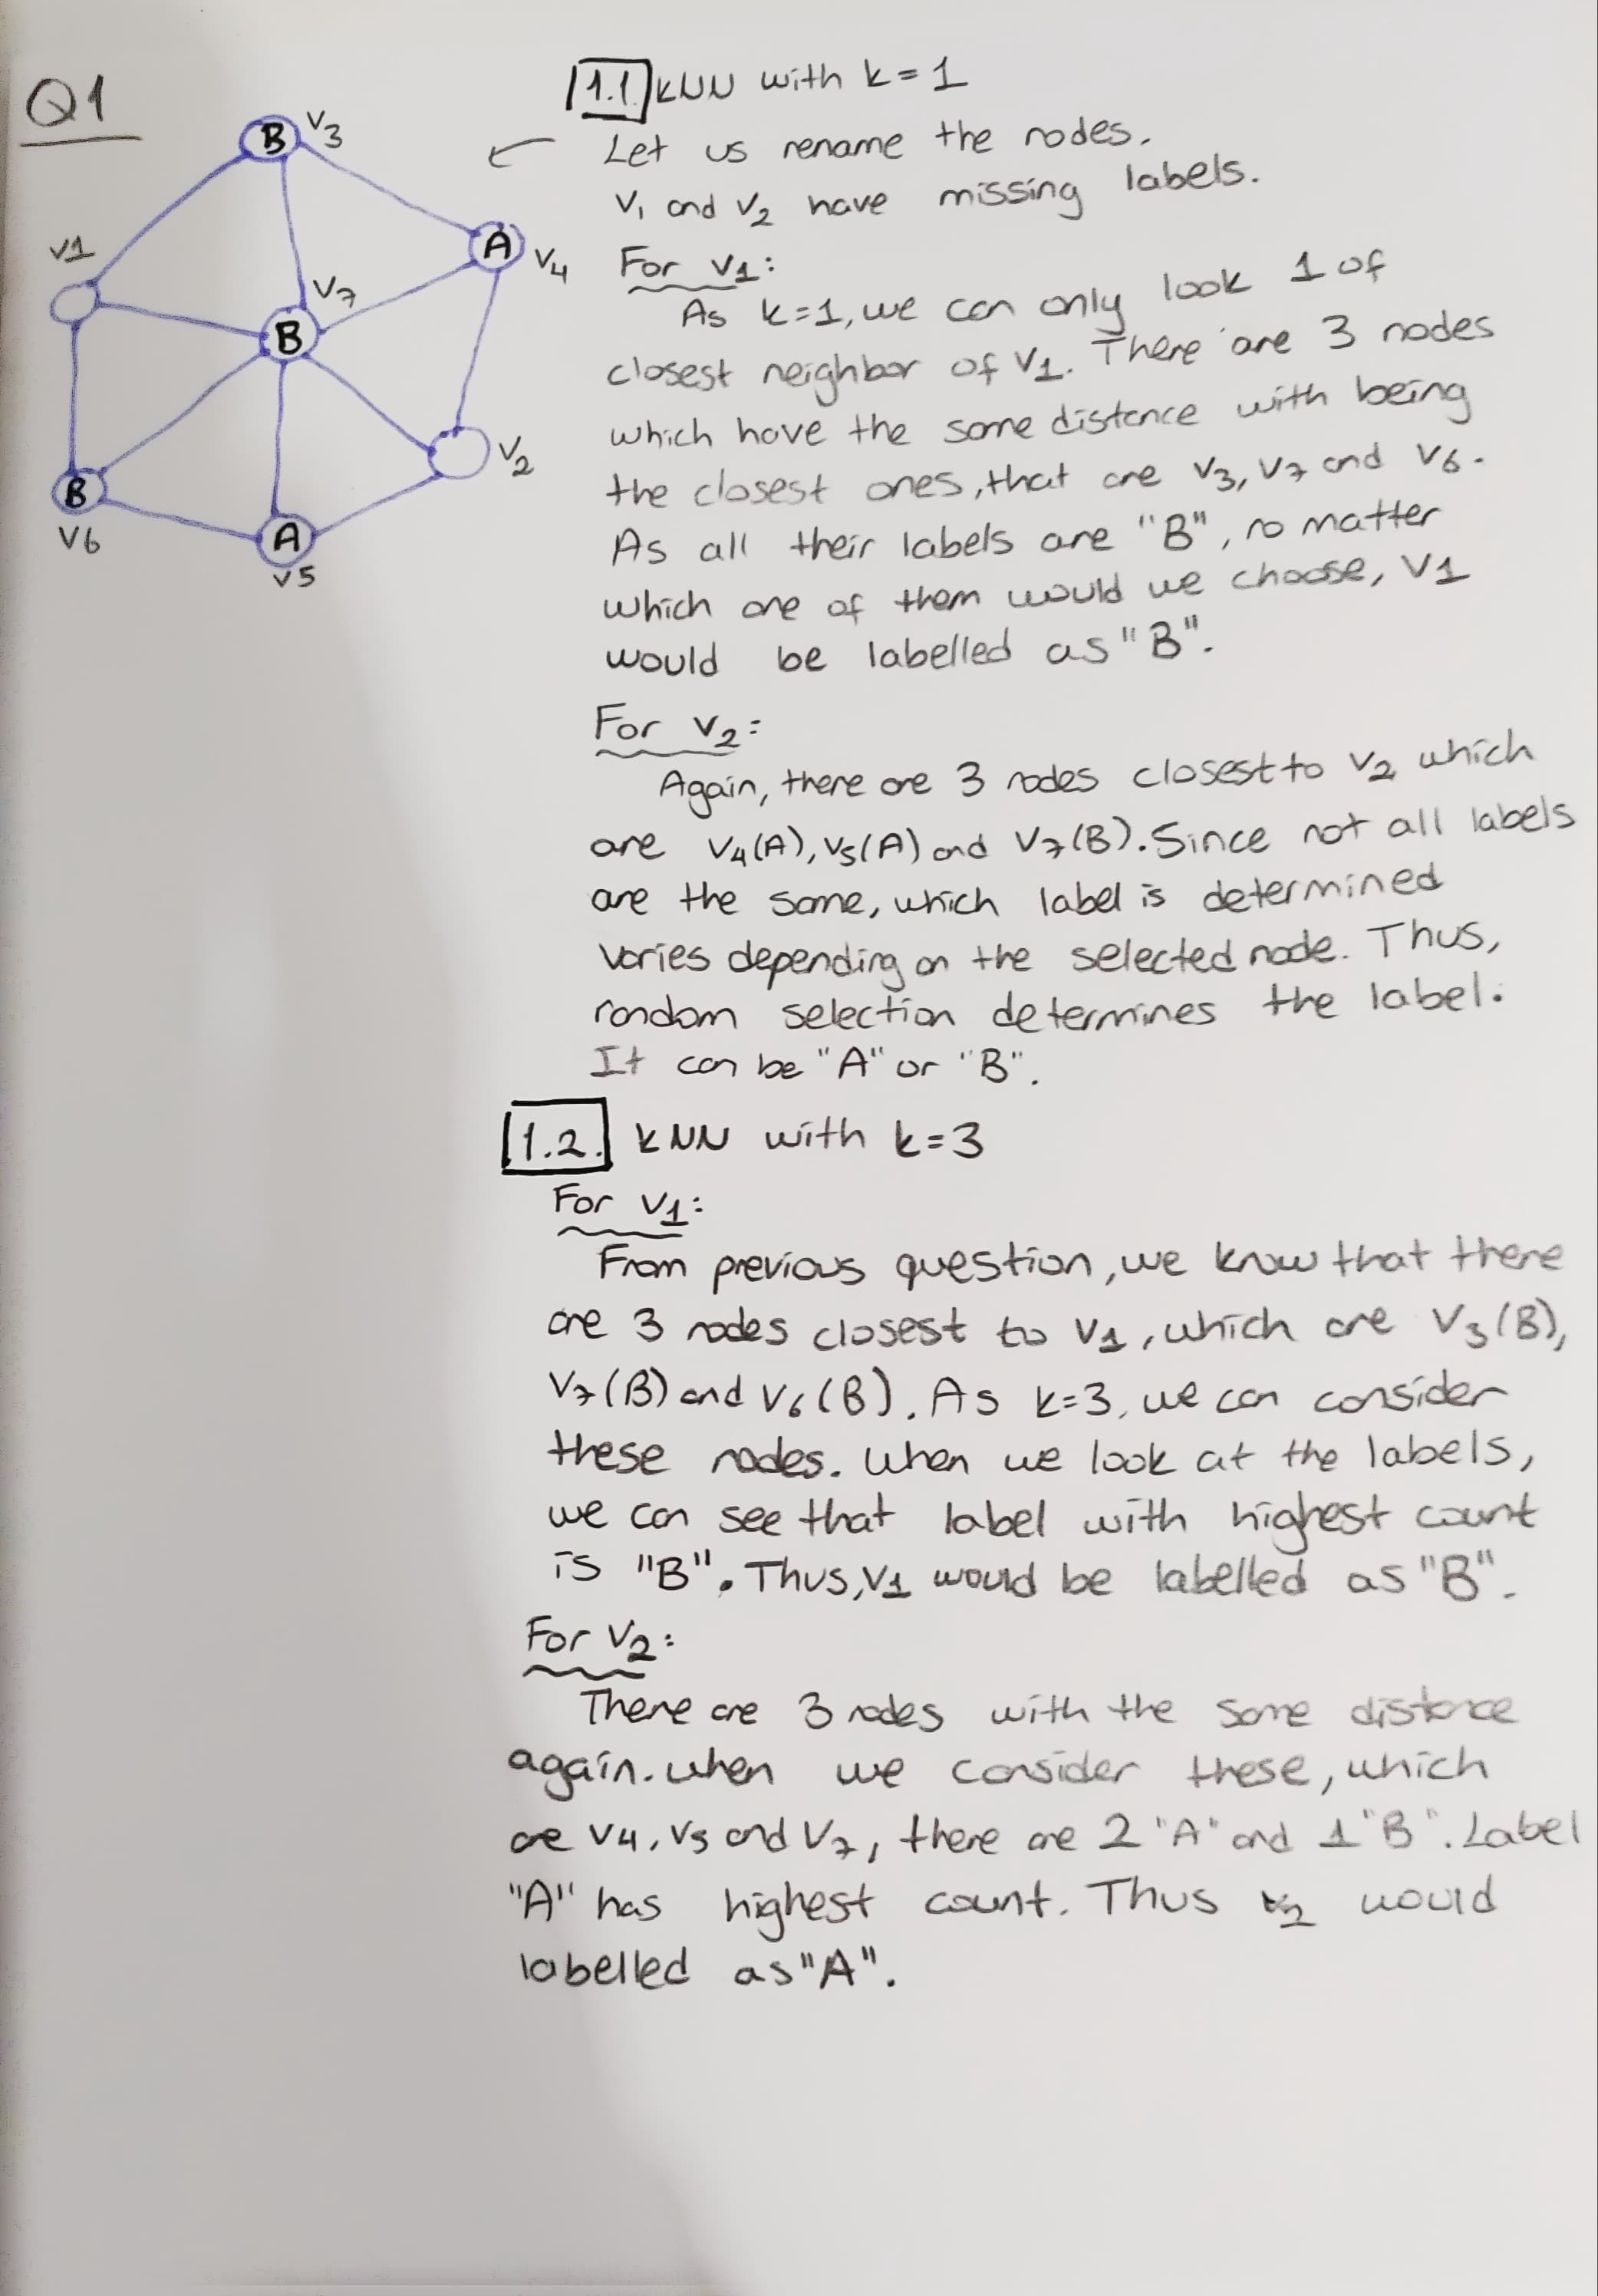 Q1
B v3
v1
A v4
v7
B
v2
B
v6
A
v5
1.1. kNN with k=1
Let us rename the nodes.
v1 and v2 have missing labels.
For v1:
As k=1, we can only look 1 of
closest neighbor of v1. There are 3 nodes
which have the same distance with being
the closest ones, that are v3, v7 and v6.
As all their labels are "B", no matter
which one of them would we choose, v1
would be labelled as "B".
For v2:
Again, there are 3 nodes closest to v2 which
are v4(A), v5(A) and v7(B). Since not all labels
are the same, which label is determined
varies depending on the selected node. Thus,
random selection determines the label.
It can be "A" or "B".
1.2. kNN with k=3
For v1:
From previous question, we know that there
are 3 nodes closest to v1, which are v3(B),
v7(B) and v6(B). As k=3, we can consider
these nodes. When we look at the labels,
we can see that label with highest count
is "B". Thus, v1 would be labelled as "B".
For v2:
There are 3 nodes with the same distance
again. When we consider these, which
are v4, v5 and v7, there are 2 "A" and 1 "B". Label
"A" has highest count. Thus v2 would
labelled as "A".